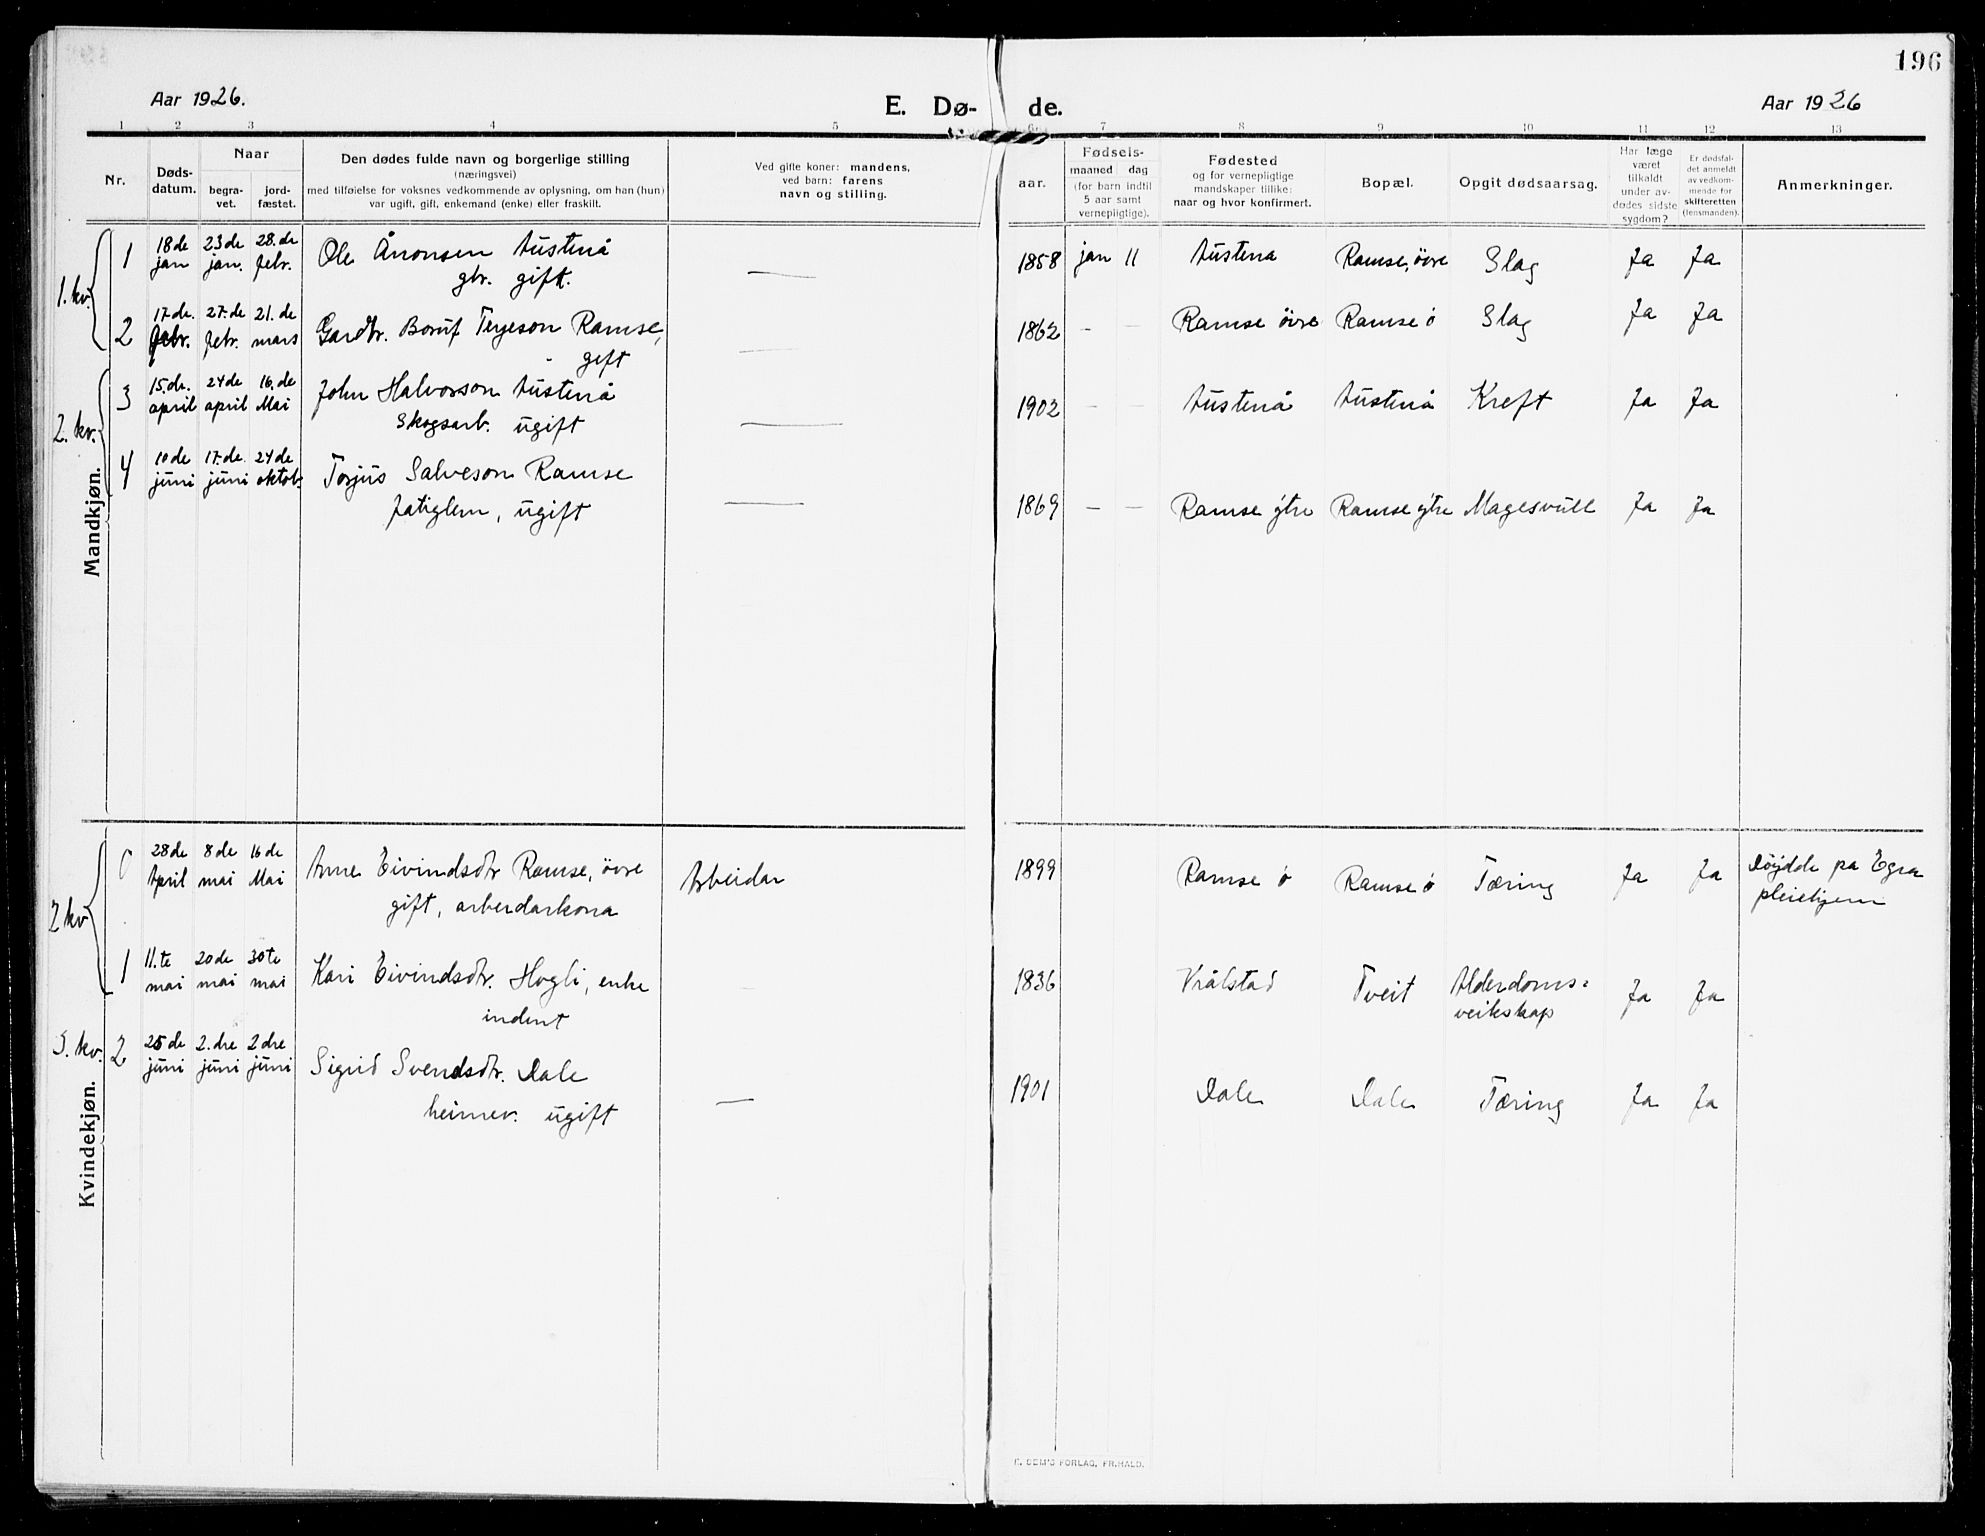 196
Aar 1926.
E. Dø- de.
Aar 1926
1 2 3 4 5 6 7 8 9 10 11 12 13
Nr.
Døds-
datum.
Naar
begra-
vet.
jord-
fæstet.
Den dødes fulde navn og borgerlige stilling
(næringsvei)
med tilføielse for voksnes vedkommende av oplysning, om han (hun)
var ugift, gift, enkemand (enke) eller fraskilt.
Ved gifte koner: mandens,
ved barn: farens
navn og stilling.
Fødsels-
aar.
maaned dag
(for barn indtil
5 aar samt
vernepligtige).
Fødested
og for vernepligtige
mandskaper tillike:
naar og hvor konfirmert.
Bopæl.
Opgit dødsaarsag.
Har læge
været
tilkaldt
under av-
dødes sidste
sygdom?
Er dødsfal-
det anmeldt
av vedkom-
mende for
skifteretten
(lensmanden).
Anmerkninger.
Mandkjøn.
1. kv.
1 18de 23de 28.de Ole Ånonsen Austenå — 1858 jan 11 Austena Ramse, övre Slag Ja Ja
jan jan. febr. gbr. gift.
2 17de. 27.de 21.de Gardbr. Boruf Terjeson Ramse, — 1862 - - Ramse övre Ramse ö Slag Ja Ja
febr. febr. mars gift
2. kv.
3 15.de. 24de 16.de John Halvorson Austenå — 1902 - - Austenå Austenå Kreft Ja Ja
april april Mai Skogsarb. ugift
4 10de 17.de. 24de Torjus Salveson Ramse — 1869 - - Ramse ytre Ramse ytre Magesvull Ja Ja
juni juni oktob. fatiglem, ugift
Kvindekjøn.
2 kv
0 28de 8de 16de Anne Eivindsdtr Ramse, övre Arbeidar 1899 Ramse ö Ramse ö Tæring Ja Ja Döydde pa Egra
April mai Mai gift, arbeidarkona pleiehjem
1 11.te 20de 30te Kari Eivindsdtr. Hogli, enke 1836 Vrålstad Tveit Alderdoms= Ja Ja
mai mai mai indent veikskap
3. kv.
2 25de 2.dre 2dre Sigrid Svendsdtr. Dale — 1901 Dale Dale Tæring Ja Ja
juni juni juni heimev. ugift
FORLAG, FR.HALD.